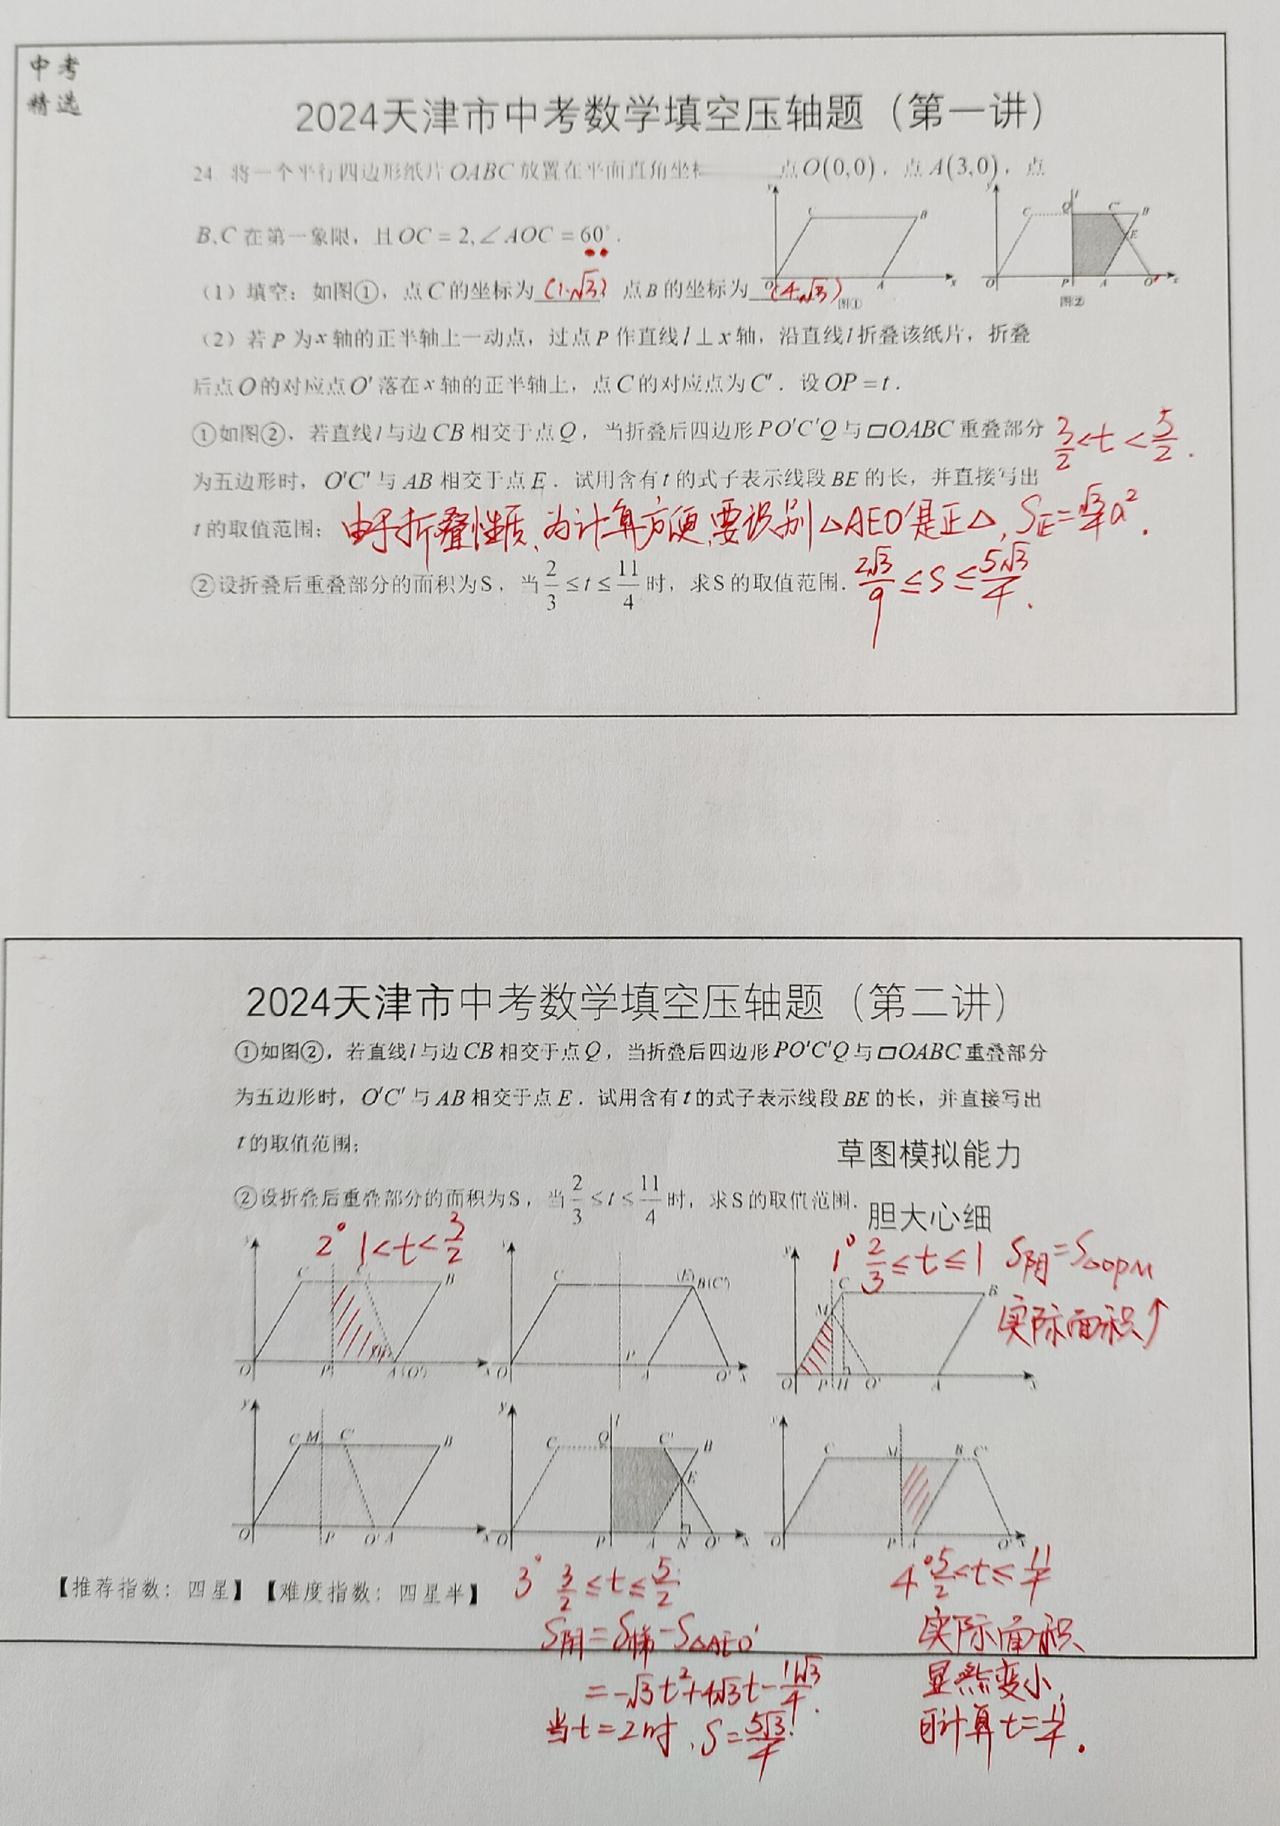 中考
精选
2024天津市中考数学填空压轴题（第一讲）
24 将一个平行四边形纸片OABC放置在平面直角坐标 点O(0,0)，点A(3,0)，点
B,C在第一象限，且OC=2,∠AOC=60°.
（1）填空：如图①，点C的坐标为 (1·√3) 点B的坐标为 (4,√3)
y C B O A x 图①
y C Q l C' B E O P A O' x 图②
（2）若P为x轴的正半轴上一动点，过点P作直线l⊥x轴，沿直线l折叠该纸片，折叠
后点O的对应点O'落在x轴的正半轴上，点C的对应点为C'．设OP=t．
①如图②，若直线l与边CB相交于点Q，当折叠后四边形PO'C'Q与▱OABC重叠部分 3/2<t<5/2.
为五边形时，O'C'与AB相交于点E．试用含有t的式子表示线段BE的长，并直接写出
t的取值范围； 由于折叠性质、为计算方便要识别△AEO'是正△, S正=√3/4a².
②设折叠后重叠部分的面积为S，当2/3≤t≤11/4时，求S的取值范围. 2√3/9≤S≤5√3/4.
2024天津市中考数学填空压轴题（第二讲）
①如图②，若直线l与边CB相交于点Q，当折叠后四边形PO'C'Q与▱OABC重叠部分
为五边形时，O'C'与AB相交于点E．试用含有t的式子表示线段BE的长，并直接写出
t的取值范围；
草图模拟能力
②设折叠后重叠部分的面积为S，当2/3≤t≤11/4时，求S的取值范围.
胆大心细
2° 1<t<3/2
1° 2/3≤t≤1 S阴=S△OPM
实际面积↑
y C C' B O P A(O') x
y C (E)B(C') O P A O' x
y M C B O P H O' A x
y C M C' B O P O' A x
y C Q l C' B E O P A N O' x
y C M B C' O P A O' x
【推荐指数：四星】【难度指数：四星半】
3° 3/2≤t≤5/2
S阴=S梯-S△AEO'
=-√3t²+4√3t-11√3/4.
当t=2时、S=5√3/4.
4° 5/2<t≤11/4
实际面积
显然变小,
可计算t=11/4.